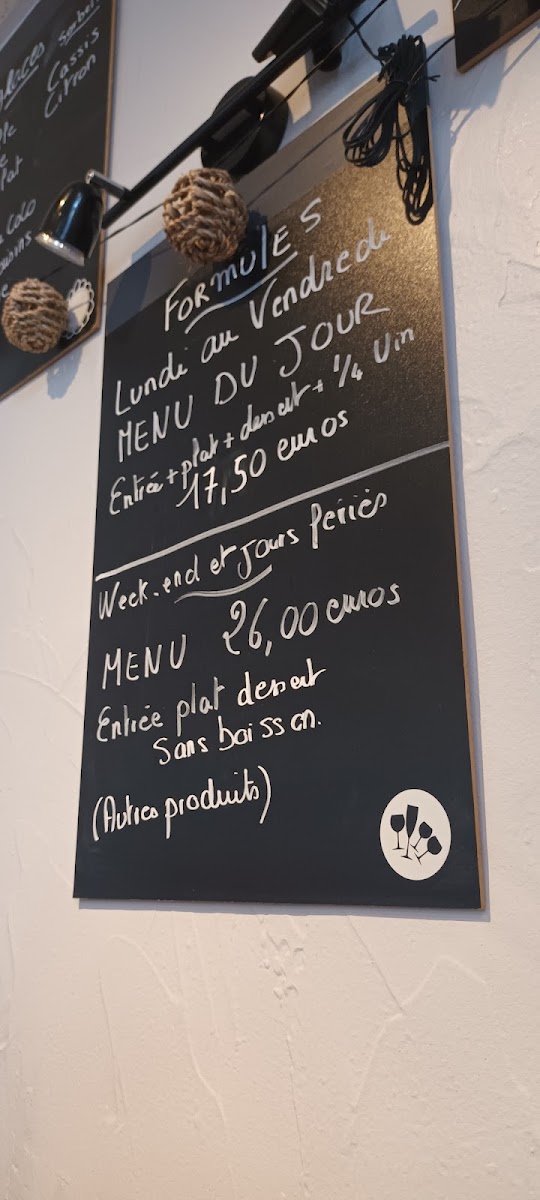 Sorbets
Cassis
Citron
Coco
FORMULES
Lundi au Vendredi
MENU DU JOUR
Entrée + plat + dessert + 1/4 Vin
17,50 euros
Week-end et Jours fériés
MENU 26,00 euros
Entrée plat dessert
Sans boisson.
(Autres produits)